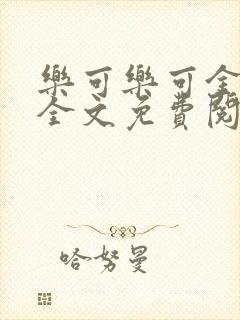 樂可樂可全
全文免費閱
哈努曼